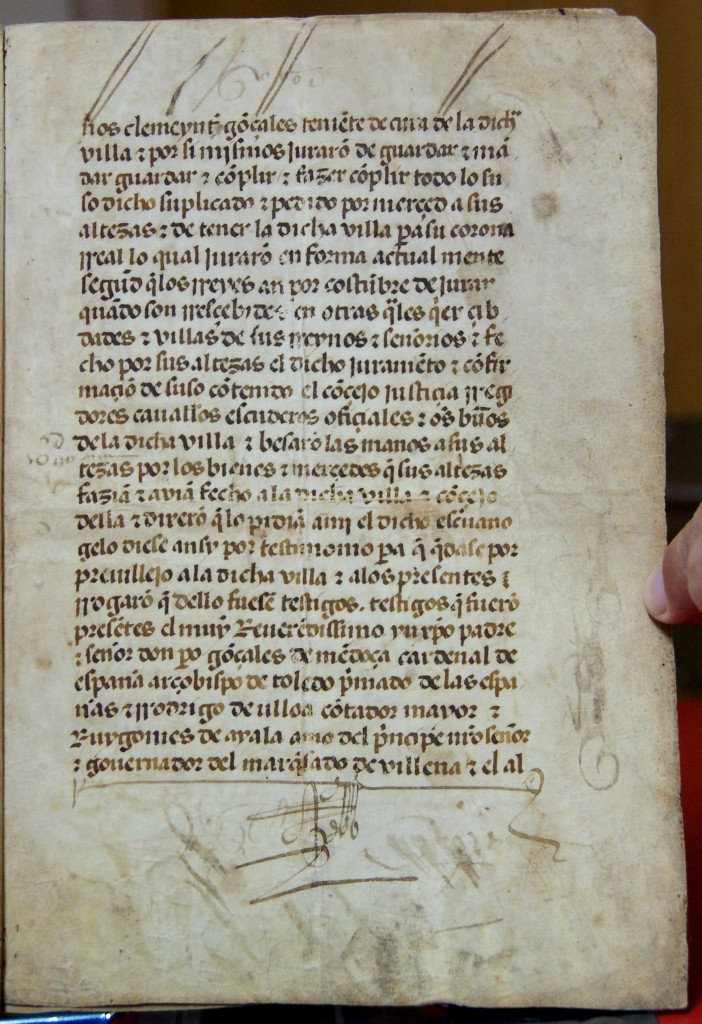 ños clemeynt gōçales teniēte de cura de la dich
villa ⁊ por si mismos jurarō de guardar ⁊ mā
dar guardar ⁊ cōplir ⁊ fazer cōplir todo lo su
so dicho suplicado ⁊ pedido por merçed a sus
altezas ⁊ de tener la dicha villa pa su corona
rreal lo qual juraro en forma actual mente
segūd q̄ los rreyes an por costūbre de jurar
quādo son rresçebidos en otras q̄les q̄er çib
dades ⁊ villas de sus rreynos ⁊ señorios ⁊ fe
cho por sus altezas el dicho juramēto ⁊ cōfir
maçiō de suso cōtenido el cōçejo justiçia rregi
dores cavallos escuderos ofiçiales ⁊ os̄ būos
de la dicha villa ⁊ besarō las manos a sus al
tezas por los bienes ⁊ merçedes q̄ sus altezas
faziā ⁊ aviā fecho a la dicha villa ⁊ cōçejo
della ⁊ dixerō q̄ lo pidiā a mj el dicho escūano
q̄ gelo diese ansy por testimonio pa q̄ q̄dase por
previllejo a la dicha villa ⁊ a los presentes ⁊
rrogarō q̄ dello fuesē testigos. testigos q̄ fuerō
presētes el muy Reuerēdissimo xp̄o padre
⁊ señor don po gōçales de mēdoça cardenal de
españa arçobispo de toledo p̄mado de las espa
ñas ⁊ rrodrigo de ulloa cōtador mayor ⁊
Ruygomes de ayala amo del prinçipe nr̄o señor
⁊ governador del marq̄sado de villena ⁊ el al